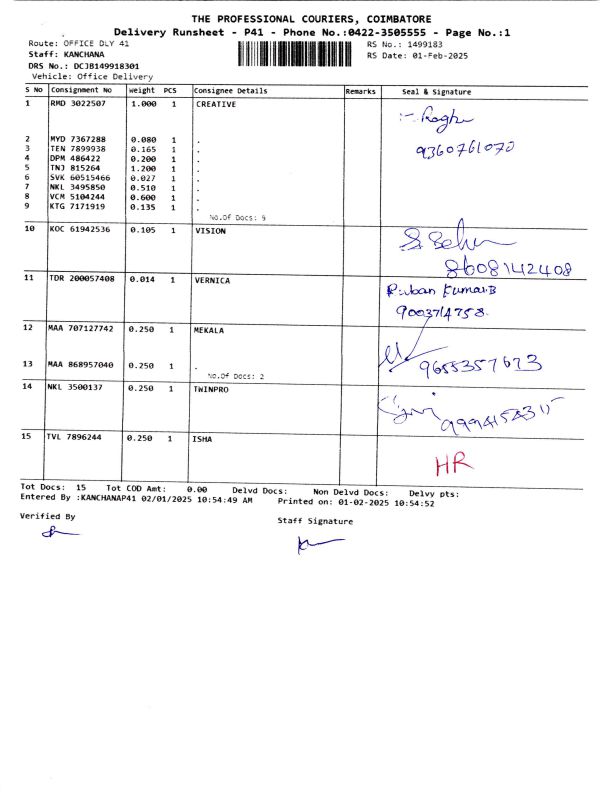 THE PROFESSIONAL COURIERS, COIMBATORE
Delivery Runsheet - P41 - Phone No.:0422-3505555 - Page No.:1
Route: OFFICE DLY 41 RS No.: 1499183
Staff: KANCHANA RS Date: 01-Feb-2025
DRS No.: DCJB149918301
Vehicle: Office Delivery
S No Consignment No Weight PCS Consignee Details Remarks Seal & Signature
1 RMD 3022507 1.000 1 CREATIVE Raghu
2 MYD 7367288 0.080 1 . 9360761070
3 TEN 7899938 0.165 1 .
4 DPM 486422 0.200 1 .
5 TNJ 815264 1.200 1 .
6 SVK 60515466 0.027 1 .
7 NKL 3495850 0.510 1 .
8 VCM 5104244 0.600 1 .
9 KTG 7171919 0.135 1 .
No.Of Docs: 9
10 KOC 61942536 0.105 1 VISION
8608142408
11 TDR 200057408 0.014 1 VERNICA
9003714758
12 MAA 707127742 0.250 1 MEKALA
13 MAA 868957040 0.250 1 . 9655357673
No.Of Docs: 2
14 NKL 3500137 0.250 1 TWINPRO
15 TVL 7896244 0.250 1 ISHA
HR
Tot Docs: 15 Tot COD Amt: 0.00 Delvd Docs: Non Delvd Docs: Delvy pts:
Entered By :KANCHANAP41 02/01/2025 10:54:49 AM Printed on: 01-02-2025 10:54:52
Verified By
Staff Signature